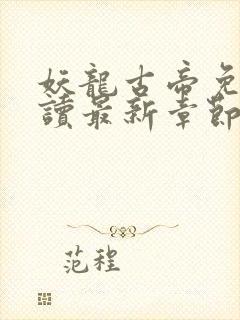 妖龍古帝免
讀最新章節
范程